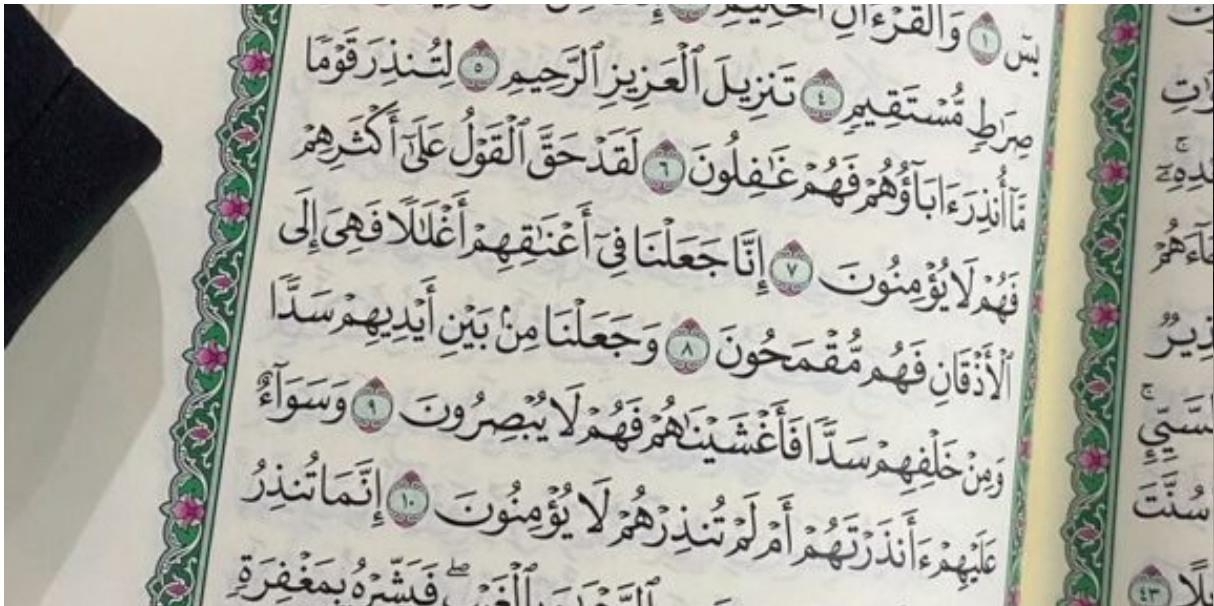 يسٓ ١ وَٱلْقُرْءَانِ ٱلْحَكِيمِ
صِرَٰطٍ مُّسْتَقِيمٍ ٤ تَنزِيلَ ٱلْعَزِيزِ ٱلرَّحِيمِ ٥ لِتُنذِرَ قَوْمًا
مَّآ أُنذِرَ ءَابَآؤُهُمْ فَهُمْ غَٰفِلُونَ ٦ لَقَدْ حَقَّ ٱلْقَوْلُ عَلَىٰٓ أَكْثَرِهِمْ
فَهُمْ لَا يُؤْمِنُونَ ٧ إِنَّا جَعَلْنَا فِىٓ أَعْنَٰقِهِمْ أَغْلَٰلًا فَهِىَ إِلَى
ٱلْأَذْقَانِ فَهُم مُّقْمَحُونَ ٨ وَجَعَلْنَا مِنۢ بَيْنِ أَيْدِيهِمْ سَدًّا
وَمِنْ خَلْفِهِمْ سَدًّا فَأَغْشَيْنَٰهُمْ فَهُمْ لَا يُبْصِرُونَ ٩ وَسَوَآءٌ
عَلَيْهِمْ ءَأَنذَرْتَهُمْ أَمْ لَمْ تُنذِرْهُمْ لَا يُؤْمِنُونَ ١٠ إِنَّمَا تُنذِرُ
بِٱلْغَيْبِ ۖ فَبَشِّرْهُ بِمَغْفِرَةٍ
٤٣